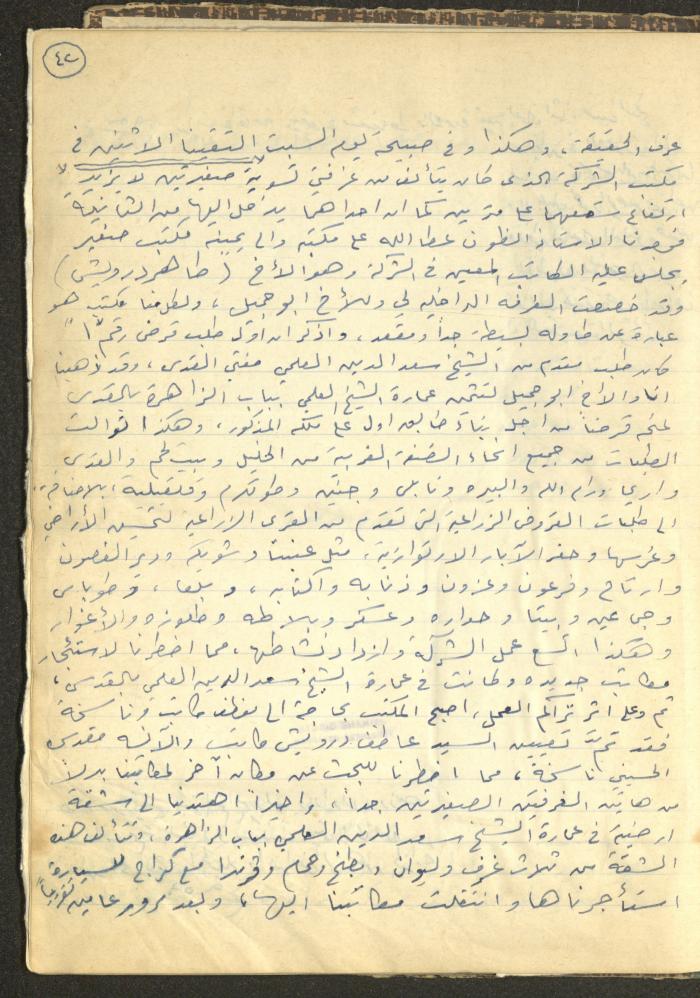 ٤٢
عرف الحقيقة، وهكذا وفي صبيحة يوم السبت التقينا الاثنين في
مكتب الشركة الذي كان يتألف من غرفتين تسوية صغيرتين لا يزيد
ارتفاع سقفهما على مترين كما ان احداهما يدخل اليها من الثانية
فوجدنا الاستاذ انطون عطا الله على مكتبه والى يمينه مكتب صغير
يجلس عليه الكاتب المعين في الشركة وهو الأخ (طاهر درويش)
وقد خصصت الغرفة الداخلية لي وللأخ ابو جميل، ولكل منا مكتب هو
عبارة عن طاولة بسيطة جداً ومقعد، واذكر ان اول طلب قرض رقم "١"
كان طلب مقدم من الشيخ سعد الدين العلمي مفتي القدس، وقد ذهبنا
انا والأخ ابو جميل لنثمن عمارة الشيخ العلمي بباب الزاهرة بالقدس
لمنحه قرضاً من اجل بناء طابق اول على ملكه المذكور، وهكذا توالت
الطلبات من جميع انحاء الضفة الغربية من الخليل وبيت لحم والقدس
واريحا ورام الله والبيره ونابلس وجنين وطولكرم وقلقيلية، بالاضافة
الى طلبات القروض الزراعية التي تقدم من القرى الزراعية لتحسين الأراضي
وغرسها وحفر الآبار الارتوازية، مثل عنبتا وشويكه ودير الغصون
وارتاح وفرعون وعزون وذنابه واكتابه، وبلعا، وطوباس
وجماعين وبيتا وحواره وعسكر وبلاطه وطلوزه والأغوار
وهكذا اتسع عمل الشركة وازداد نشاطها، مما اضطرنا لاستئجار
مكاتب جديده وكانت في عمارة الشيخ سعد الدين العلمي بالقدس،
ثم وعلى اثر تراكم العمل، اصبح المكتب بحاجة الى موظف كاتب وناسخة
فقد تم تعيين السيد عاطف درويش كاتب والآنسه مقدسه
الحسيني ناسخة، مما اضطرنا للبحث عن مكان آخر لمكاتبنا بدلاً
من هاتين الغرفتين الصغيرتين جداً، واخيراً اهتدينا الى شقة
ارضية في عمارة الشيخ سعد الدين العلمي بباب الزاهرة، وتتألف هذه
الشقة من ثلاث غرف وليوان ومطبخ وحمام وفرندا مع كراج للسيارة
استأجرناها وانتقلت مكاتبنا اليها، وبعد مرور عامين تقريباً